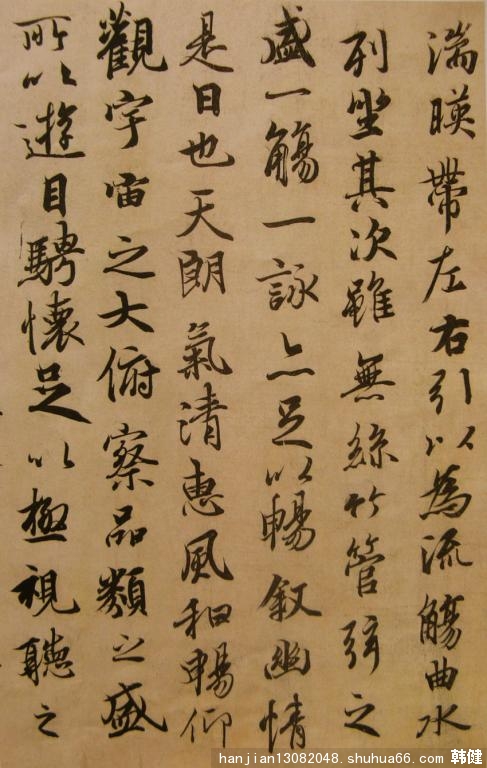 湍暎帶左右引以為流觴曲水
列坐其次雖無絲竹管弦之
盛一觴一詠亦足以暢叙幽情
是日也天朗氣清惠風和暢仰
觀宇宙之大俯察品類之盛
所以遊目騁懷足以極視聽之
hanjian13082048. shuhua66. com.韩健